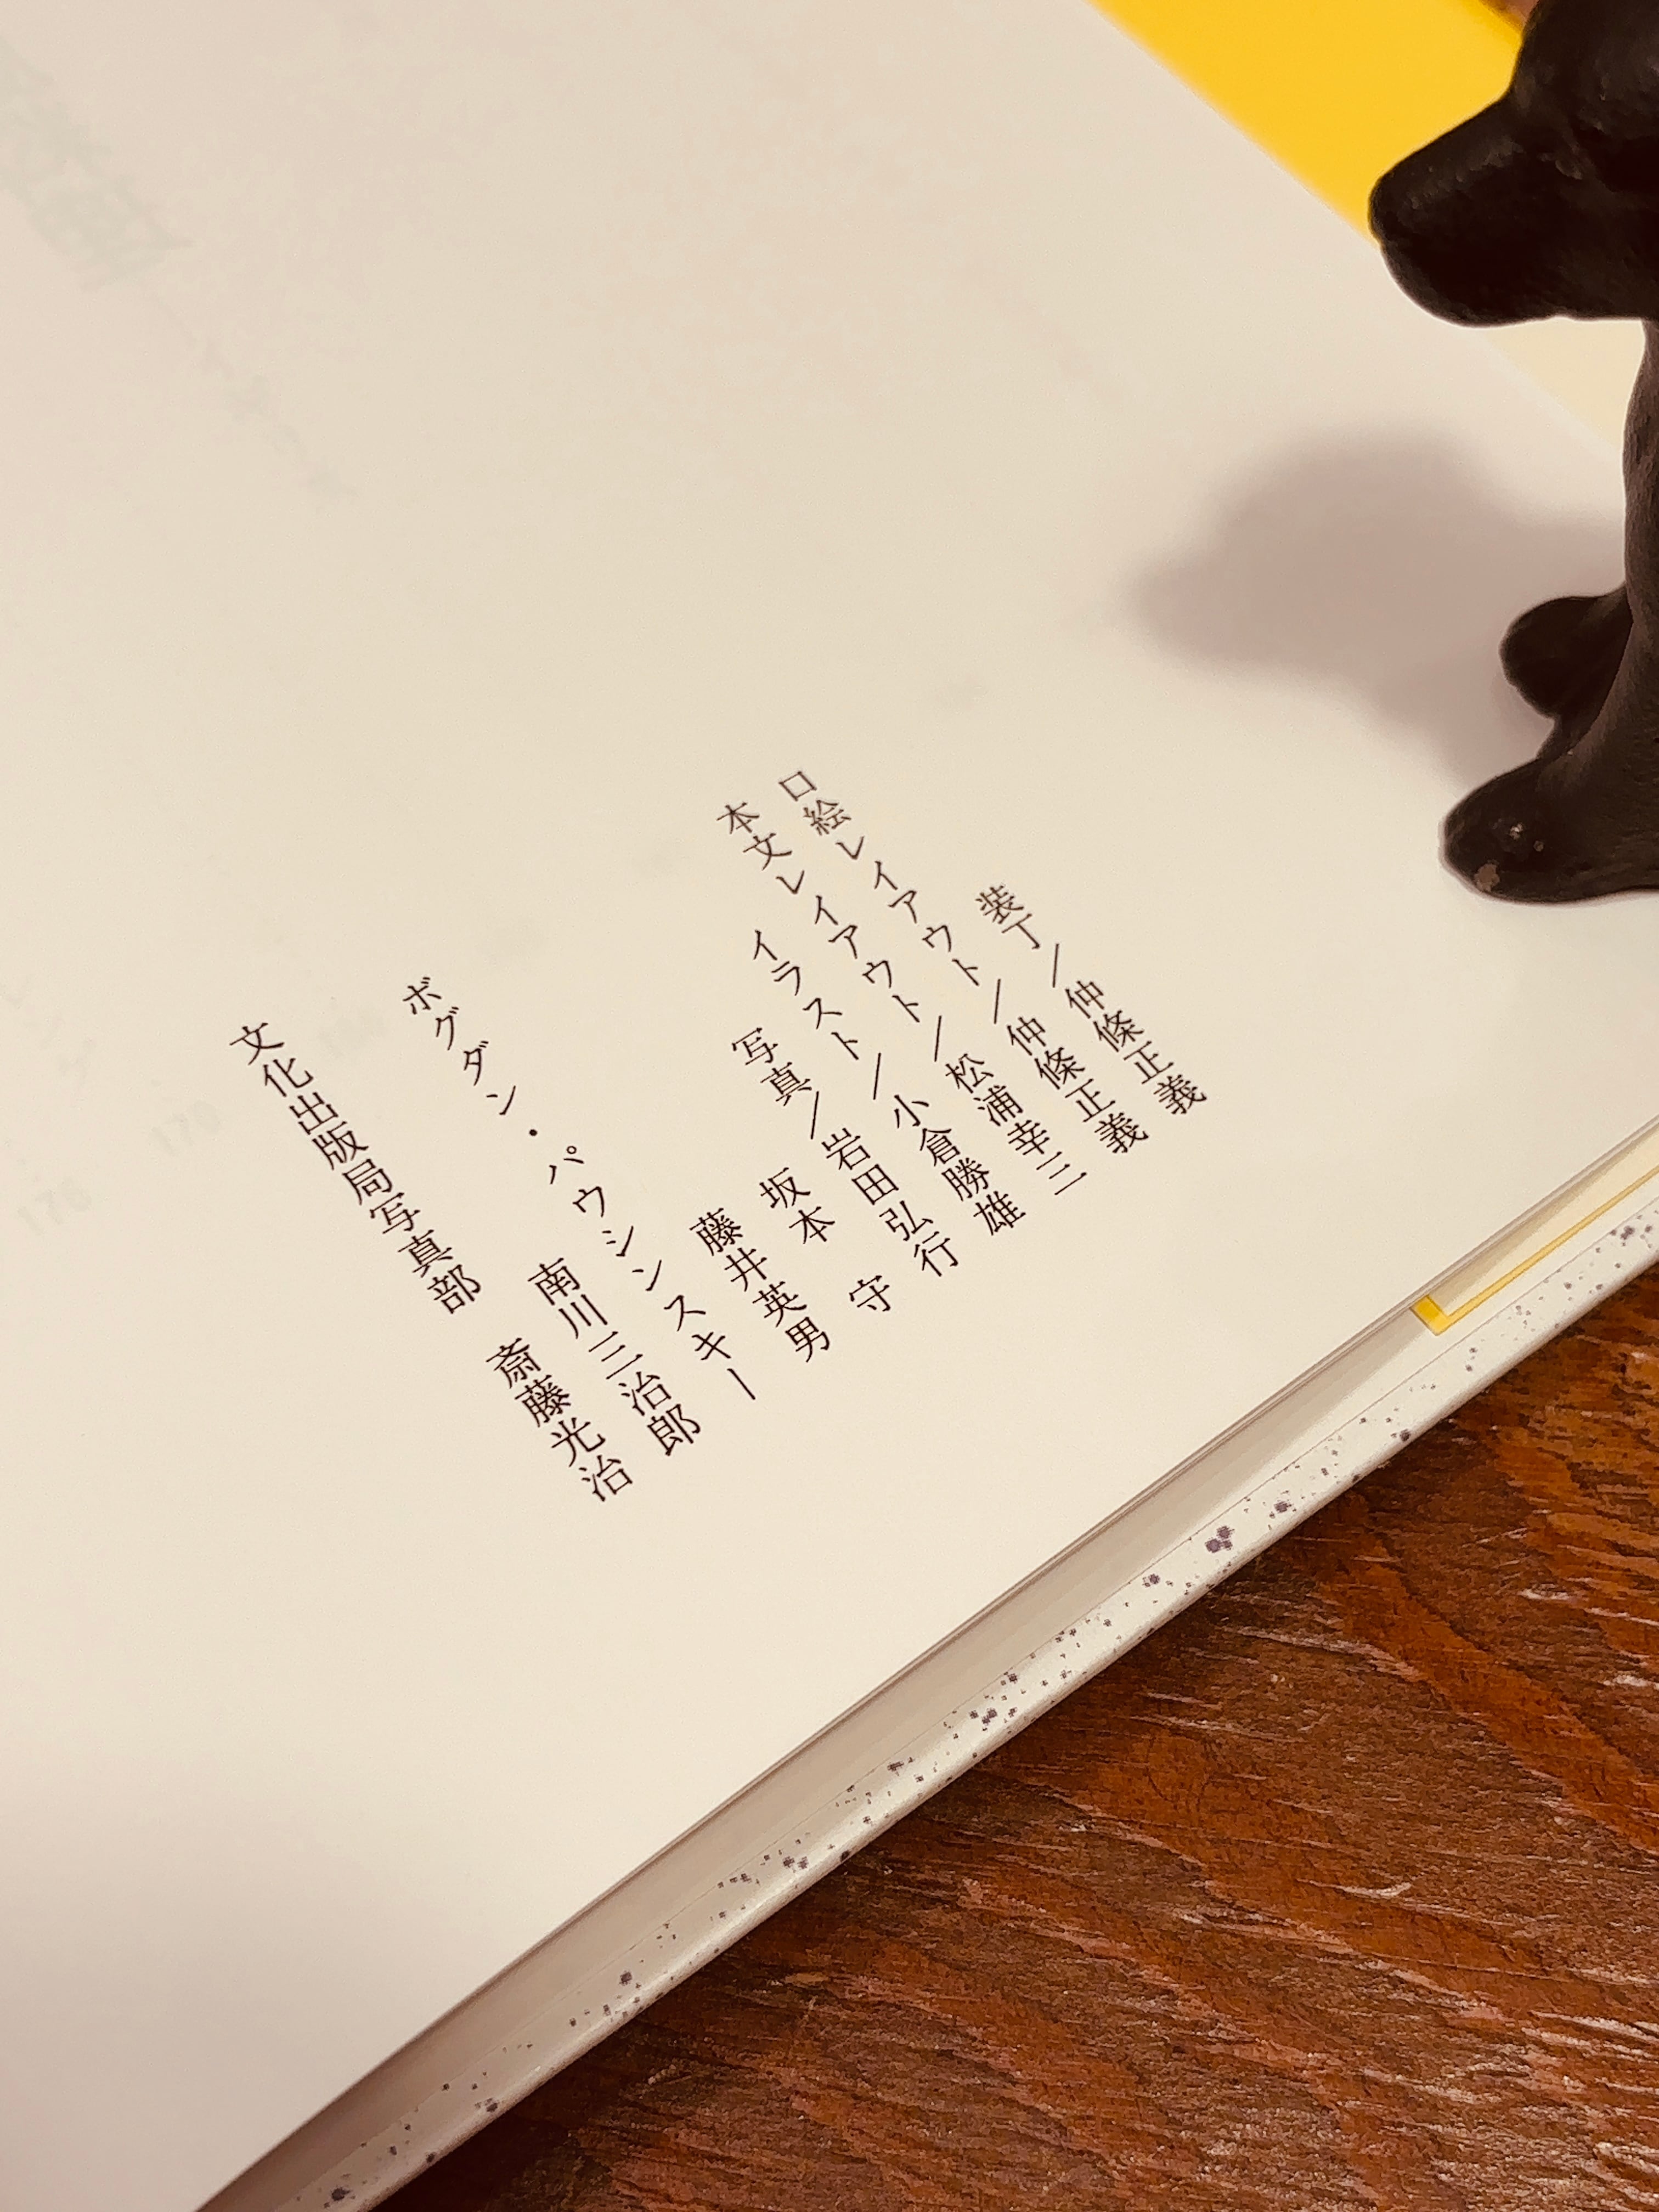 装丁／仲條正義
口絵レイアウト／仲條正義
本文レイアウト／松浦幸三
イラスト／小倉勝雄
写真／岩田弘行
坂本 守
藤井英男
ボグダン・パウシンスキー
南川三治郎
斎藤光治
文化出版局写真部
170
176